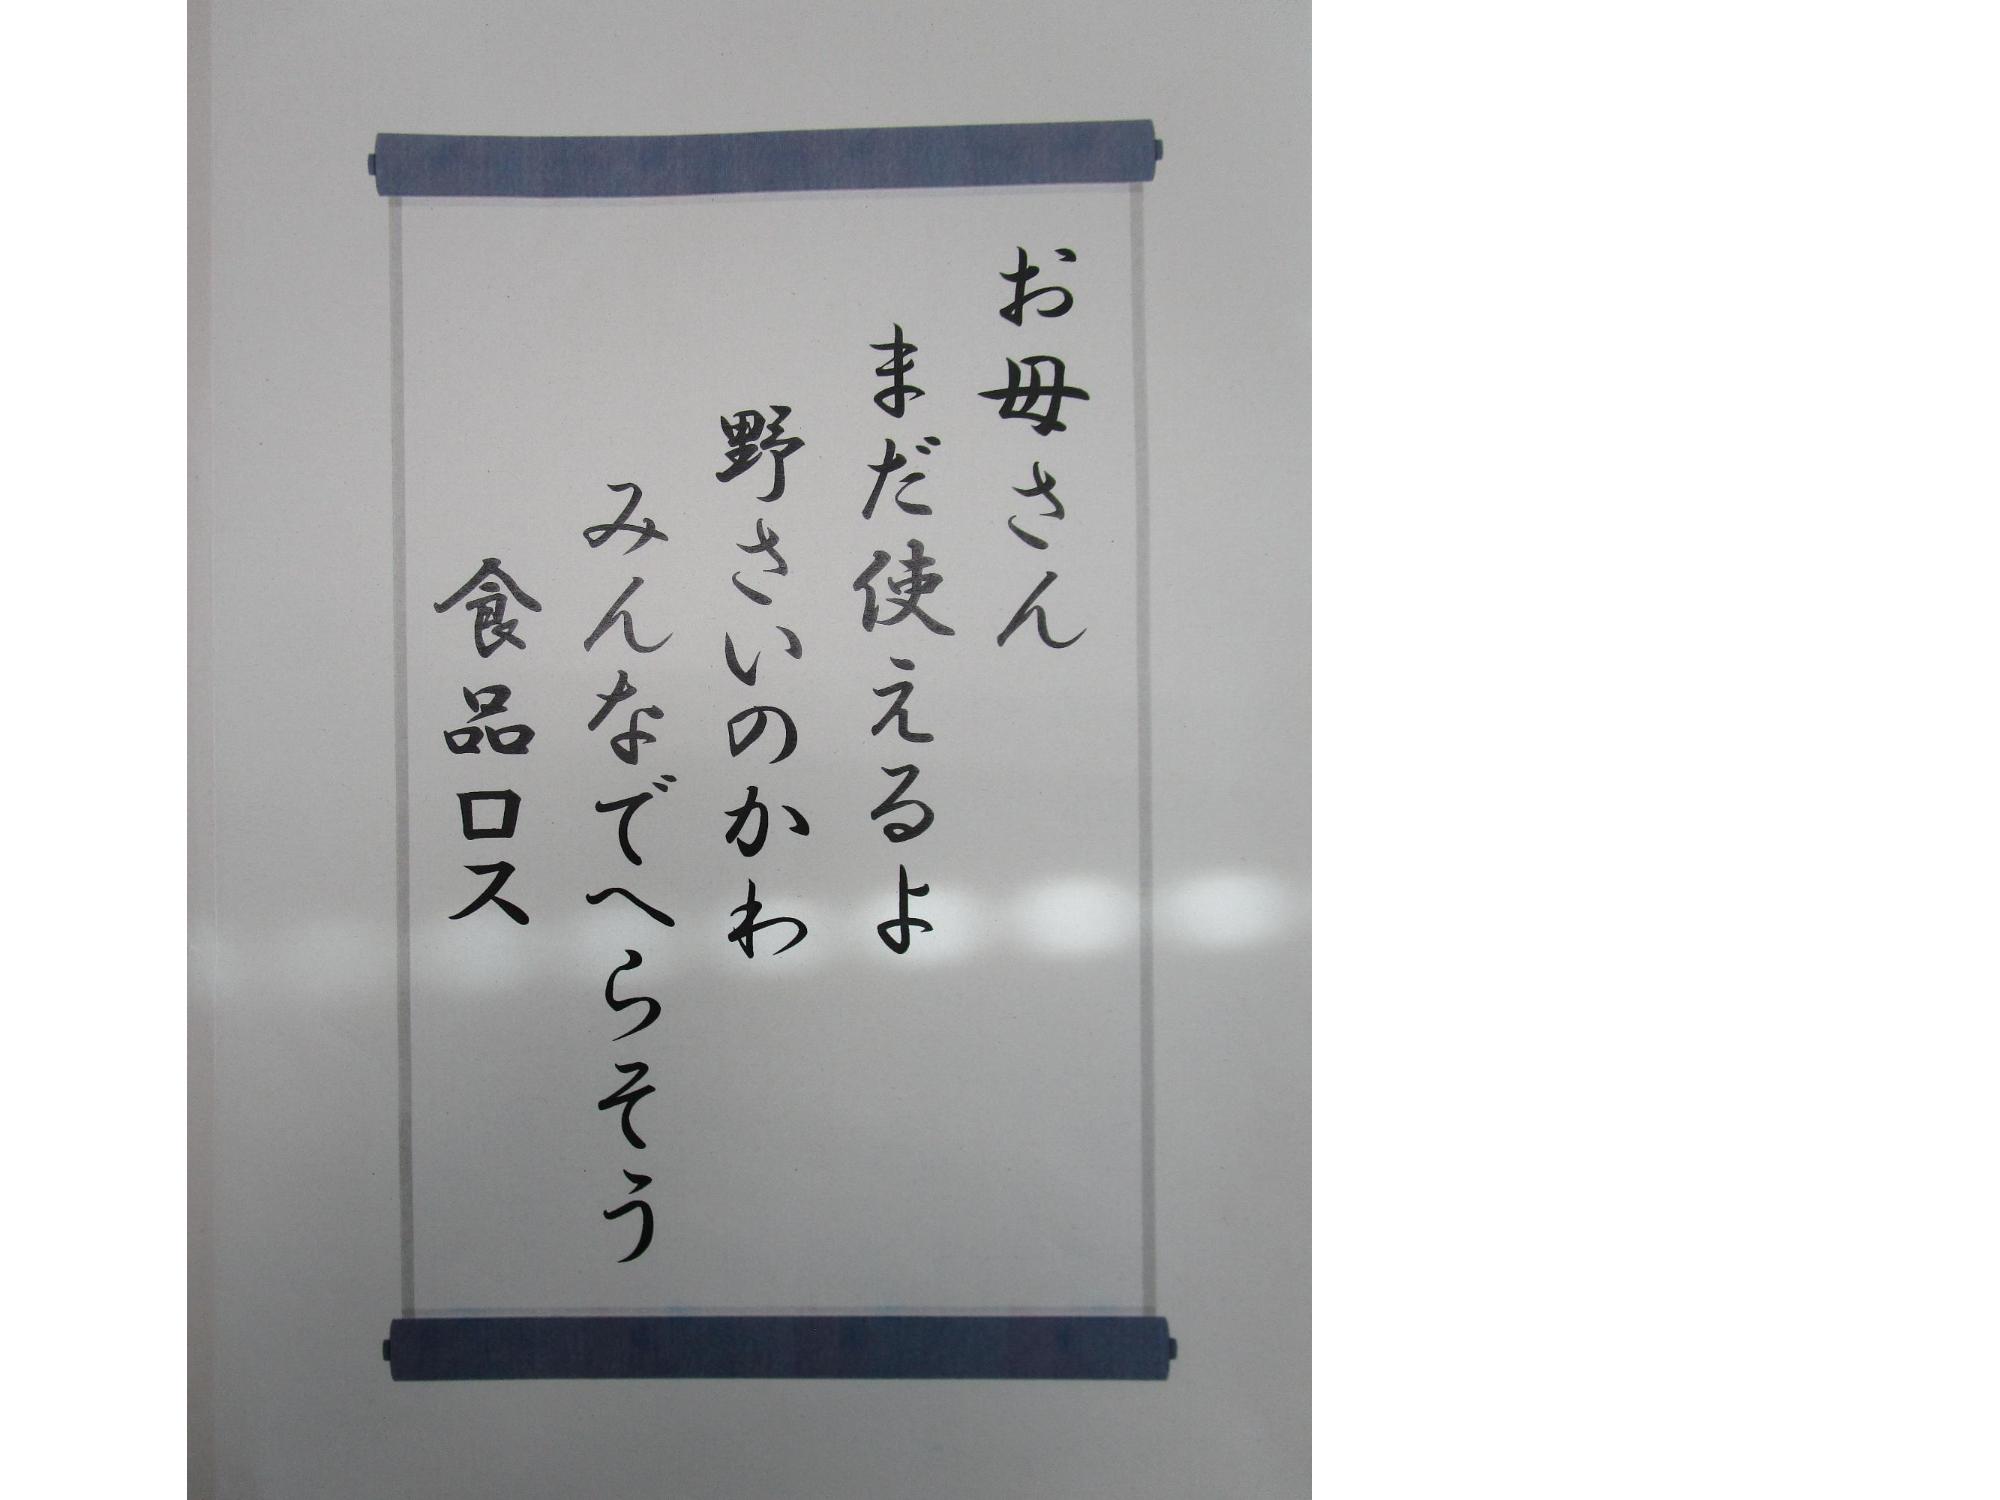 お母さん
まだ使えるよ
野さいのかわ
みんなでへらそう
食品ロス